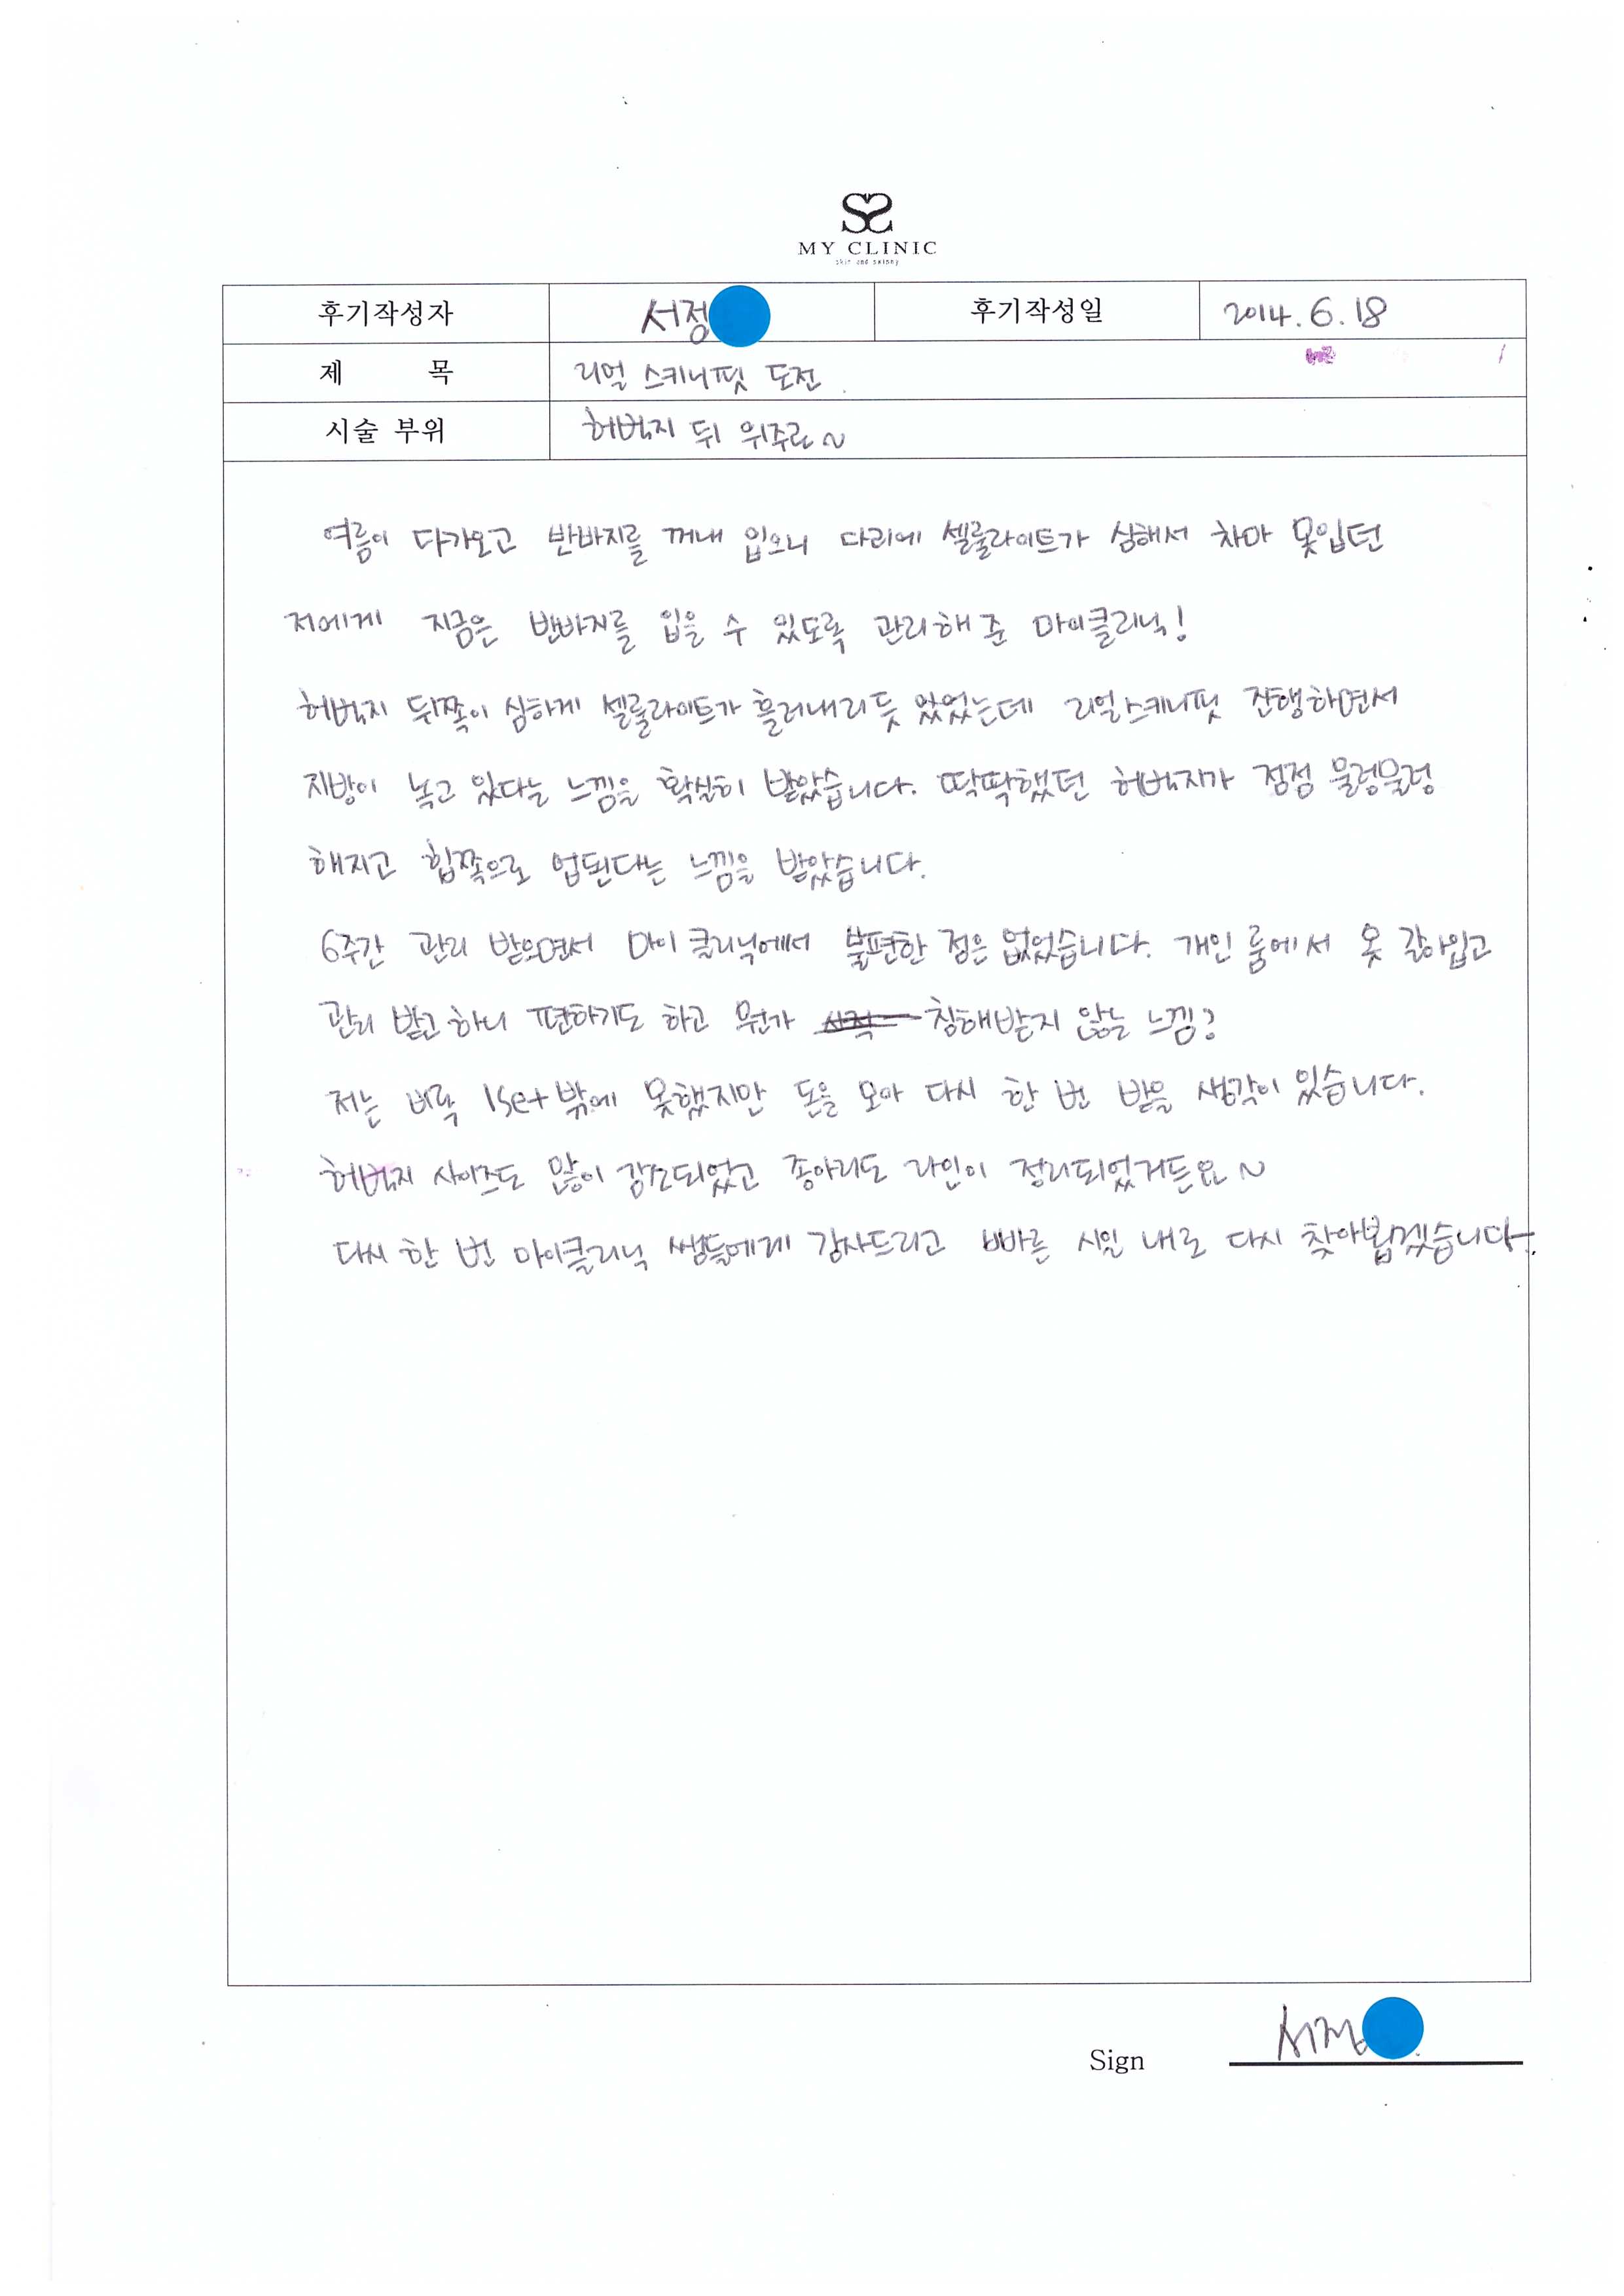 MY CLINIC
skin and skinny
후기작성자 서정 후기작성일 2014.6.18
제 목 리얼 스키니핏 도전
시술 부위 허벅지 뒤 위주로~
여름이 다가오고 반바지를 꺼내 입으니 다리에 셀룰라이트가 심해서 차마 못입던
저에게 지금은 반바지를 입을 수 있도록 관리해 준 마이클리닉!
허벅지 뒤쪽이 심하게 셀룰라이트가 흘러내리듯 있었는데 리얼스키니핏 진행하면서
지방이 녹고 있다는 느낌을 확실히 받았습니다. 딱딱했던 허벅지가 점점 물렁물렁
해지고 힙쪽으로 업된다는 느낌을 받았습니다.
6주간 관리 받으면서 마이클리닉에서 불편한 점은 없었습니다. 개인 룸에서 옷 갈아입고
관리 받고 하니 편하기도 하고 뭔가 침해받지 않는 느낌?
저는 비록 1set 밖에 못했지만 돈을 모아 다시 한 번 받을 생각이 있습니다.
허벅지 사이즈도 많이 감소되었고 종아리도 라인이 정리되었거든요~
다시 한 번 마이클리닉 쌤들에게 감사드리고 빠른 시일 내로 다시 찾아뵙겠습니다.
Sign 서정